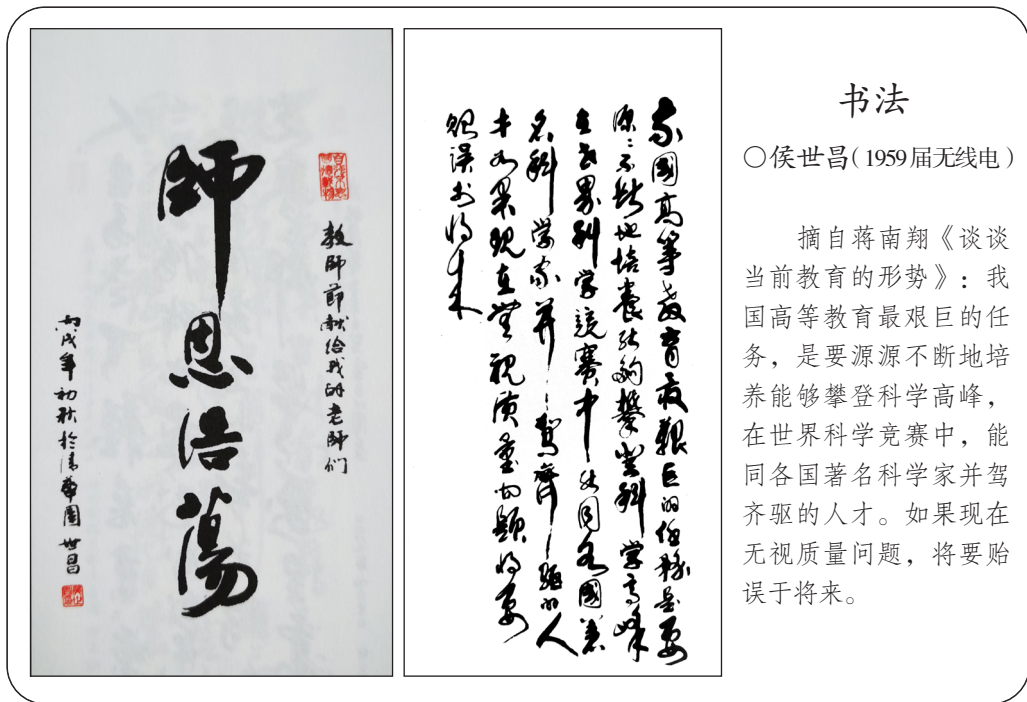 教師節献给我的老師们
師恩浩蕩
丙戌年初秋於清華園 世昌
我國高等教育最艱巨的任務是要
源々不断地培養能夠攀登科学高峰
在世界科学競赛中能同各國著
名科学家并驾齊驱的人
才如果现在無视质量问题将要
贻误於将来
书法
○侯世昌(1959届无线电)
摘自蒋南翔《谈谈
当前教育的形势》：我
国高等教育最艰巨的任
务，是要源源不断地培
养能够攀登科学高峰，
在世界科学竞赛中，能
同各国著名科学家并驾
齐驱的人才。如果现在
无视质量问题，将要贻
误于将来。